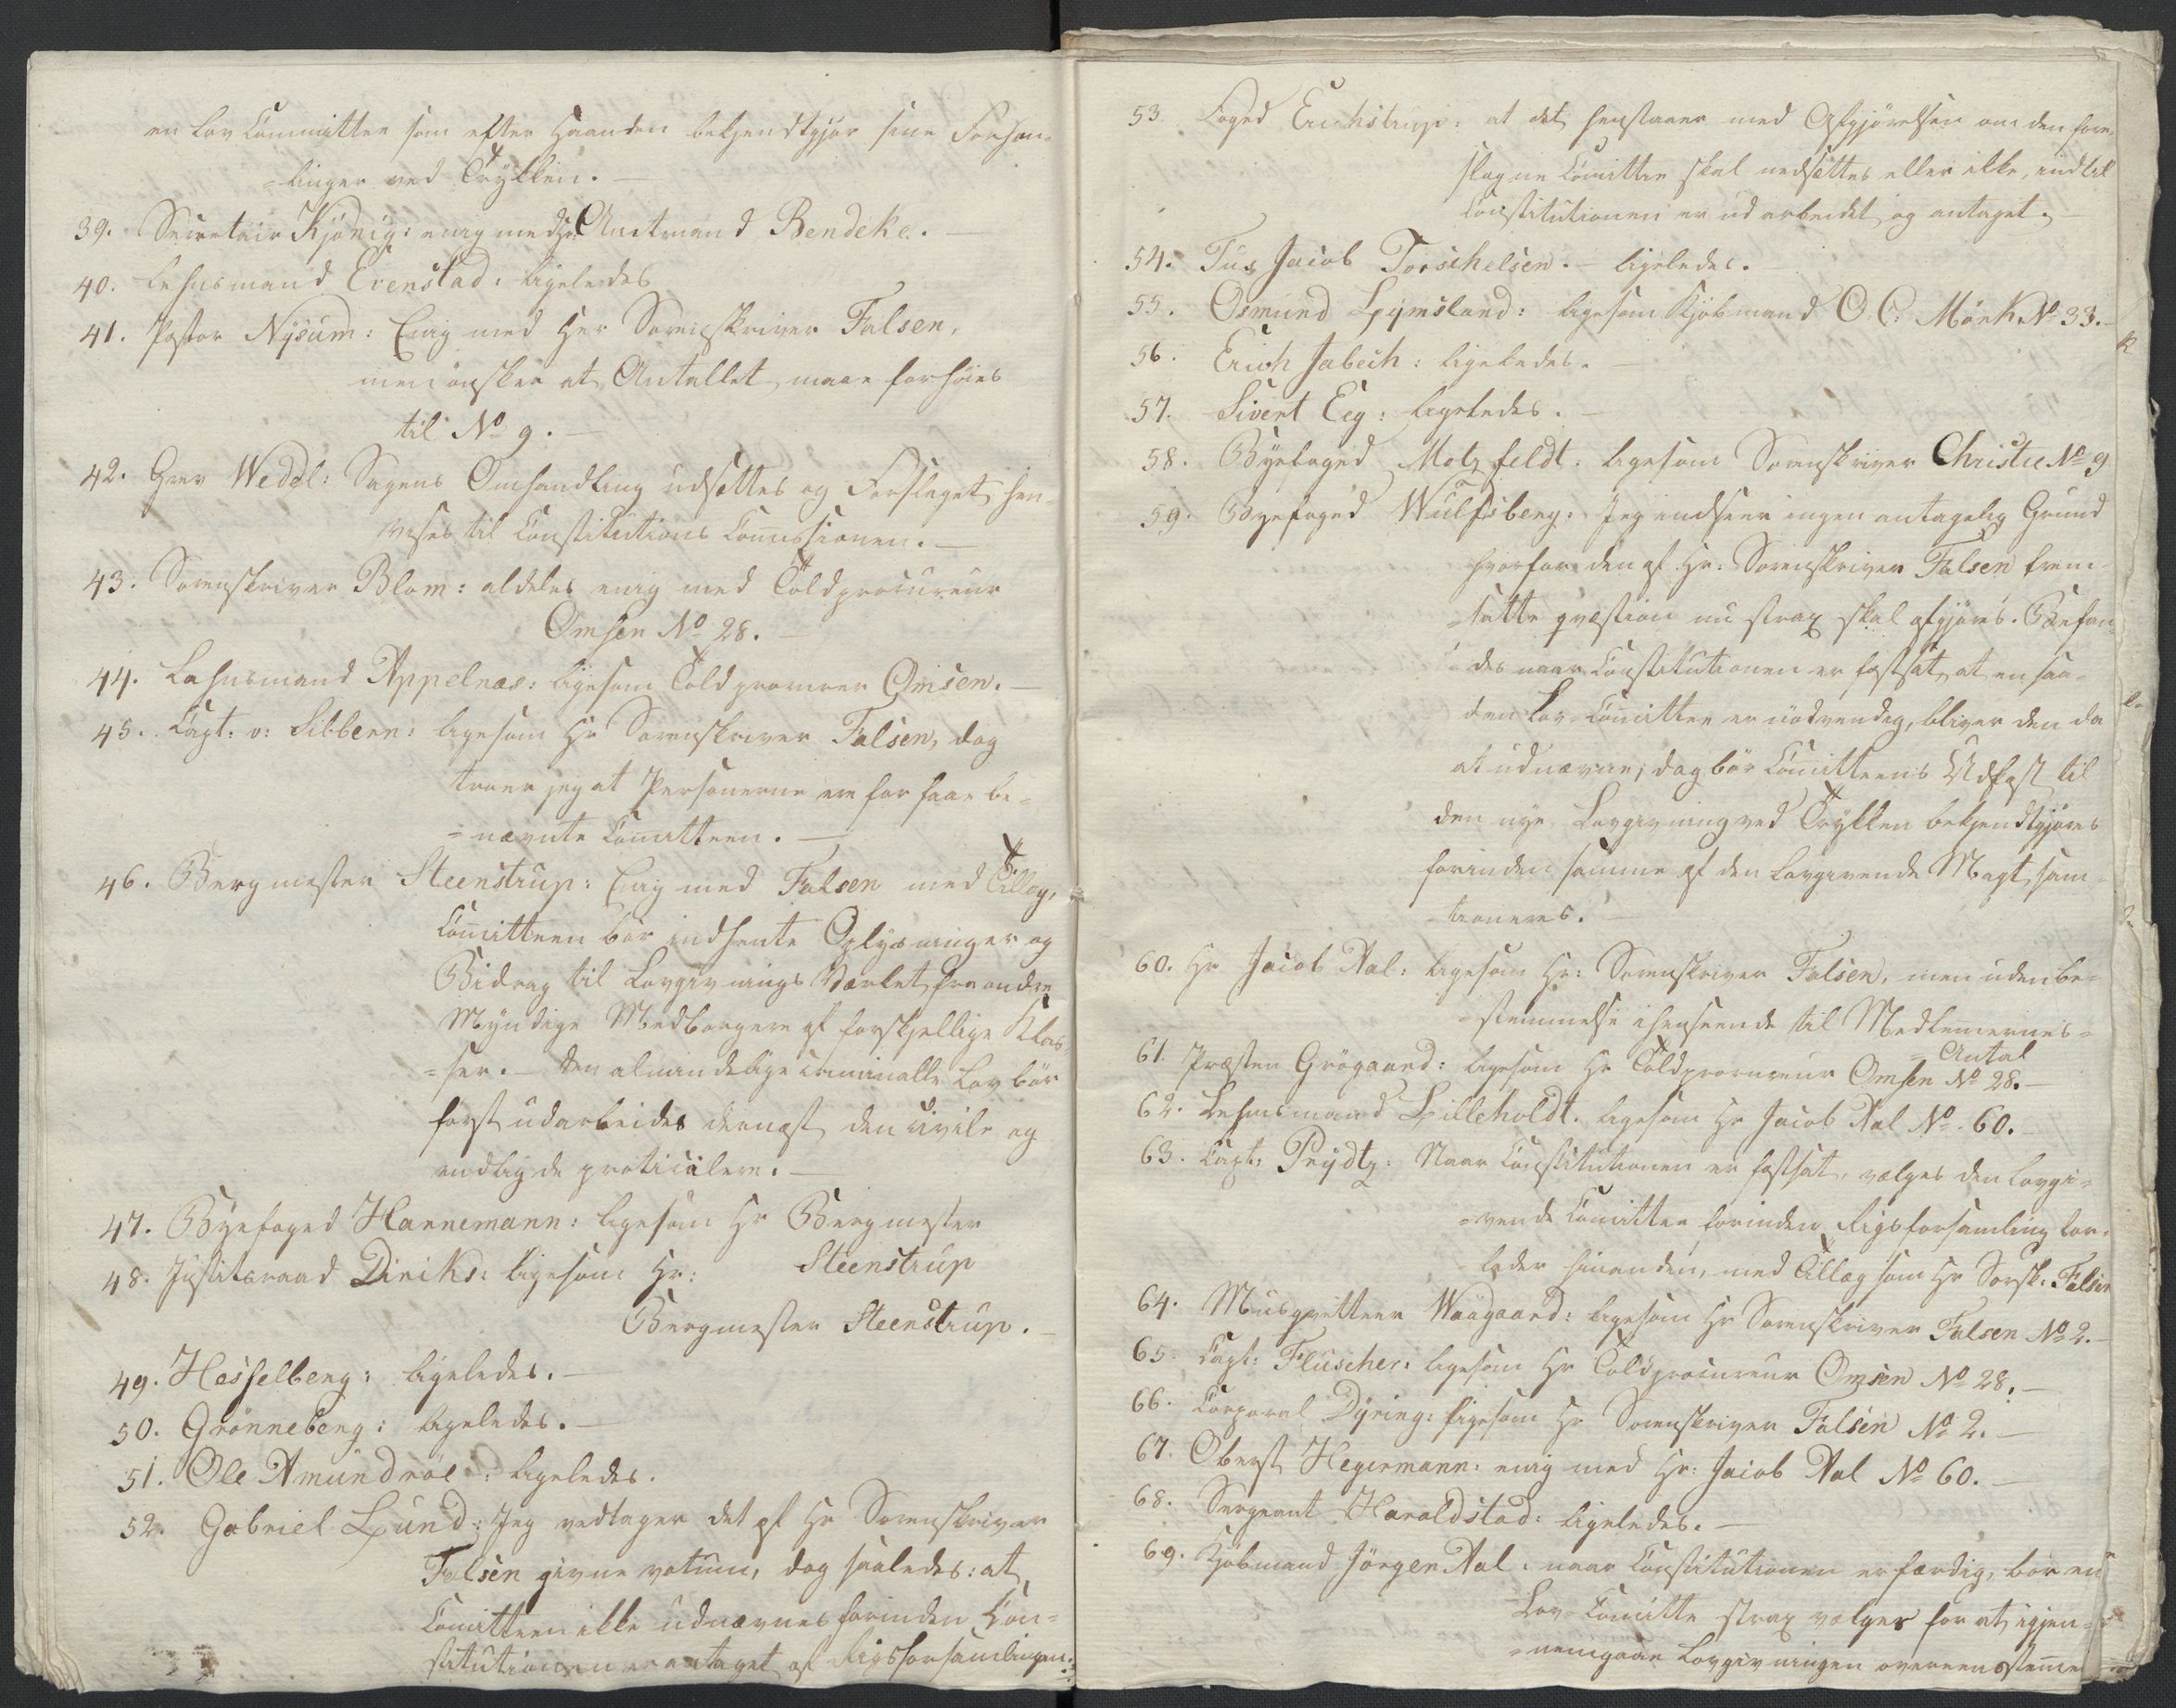 en Lov Committee som efter Haanden bekjendtgjør sine Forhan-
=linger ved Trykken. —
39. Secretair Kjønig: enig med Hr Amtmand Bendeke. —
40. Lehnsmand Evenstad: ligeledes
41. Pastor Nysum: Enig med Her Sorenskriver Falsen,
men ønsker at Antallet maae forhøies
til No 9. —
42. Grev Wedel: Sagens Omhandling udsættes og Forslaget hen-
vises til Constitutions Comissionen. —
43. Sorenskriver Blom: aldeles enig med Toldprocureur
Omsen No 28. —
44. Lehnsmand Appelnæs: ligesom Toldprocureur Omsen. —
45. Capt: v: Sibbern: ligesom Hr Sorenskriver Falsen, dog
troer jeg at Personerne ere for faae be-
=nævnte Comitteen. —
46. Bergmester Steenstrup: Enig med Falsen med Tillæg,
Comitteen bør indhente Oplysninger og
Bidrag til Lovgivnings Værket fra andre
Myndige Medborgere af forskjellige Klas-
=ser. — Den almindelige criminalle Lov bør
først udarbeides dernæst den civile og
endelig de particulere. —
47. Byefoged Hannemann: ligesom Hr Bergmester
Steenstrup
48. Justitsraad Diriks: ligesom Hr:
Bergmester Steenstrup. —
49. Hesselberg: ligeledes. —
50. Grønneberg: ligeledes. —
51. Ole Amundrøe: ligeledes.
52. Gabriel Lund: Jeg vedtager det af Hr Sorenskriver
Falsen givne votum, dog saaledes: at
Comitteen ikke udnævnes forinden Con-
stitutionen er antaget af Rigsforsamlingen:
53. Foged Erichstrup: at det henstaaer med Afgjørelsen om den fore-
slagne Comittee skal nedsættes eller ikke, indtil
Constitutionen er udarbeidet og antaget. —
54. Tus Jacob Torschelsen. — ligeledes. —
55. Osmund Lymsland: ligesom Kjøbmand O. C. Mørk No 33. —
56. Erich Jabech: ligeledes. —
57. Sivert Eeg: ligeledes. —
58. Byefoged Motzfeldt. ligesom Sorenskriver Christie No 9
59. Byefoged Wulfsberg: Jeg indseer ingen antagelig Grund
hvorfor den af Hr: Sorenskriver Falsen frem-
satte qvæstion nu strax skal afgjøres. Befin-
des naar Constitutionen er fastsat, at en saa-
dan Lov-Comittee er nødvendig, bliver den da
at udnævne; dog bør Comitteens Udkast til
den nye Lovgivning ved Trykken bekjendtgjøres
forinden samme af den Lovgivende Magt san-
tioneres. —
60. Hr Jacob Aal: ligesom Hr: Sorenskriver Falsen, men uden be-
=stemmelse i henseende til Medlemmernes=
= Antal
61. Præsten Grøgaard: ligesom Hr Toldprocureur Omsen No 28. —
62. Lehnsmand Lilleholdt. ligesom Hr Jacob Aal No 60. —
63. Capt: Prydtz: Naar Constitutionen er fastsat, vælges den lovgi-
=vende Comittee forinden Rigsforsamling for-
lader hinanden, med Tillæg som Hr Sorsk: Falsen
64. Musqvetteer Waagaard: ligesom Hr Sorenskriver Falsen No 2. —
65. Capt: Fluscher: ligesom Hr Toldprocureur Omsen No 28. —
66. Corporal Dyring: ligesom Hr Sorenskriver Falsen No 2. —
67. Oberst Hegermann: enig med Hr: Jacob Aal No 60. —
68. Sergeant Haraldstad: ligeledes. —
69. Kjøbmand Jørgen Aal: naar Constitutionen er færdig, bør en
Lov-Comitte strax vælges for at igjen-
=nemgaae Lovgivningen overeenstemme